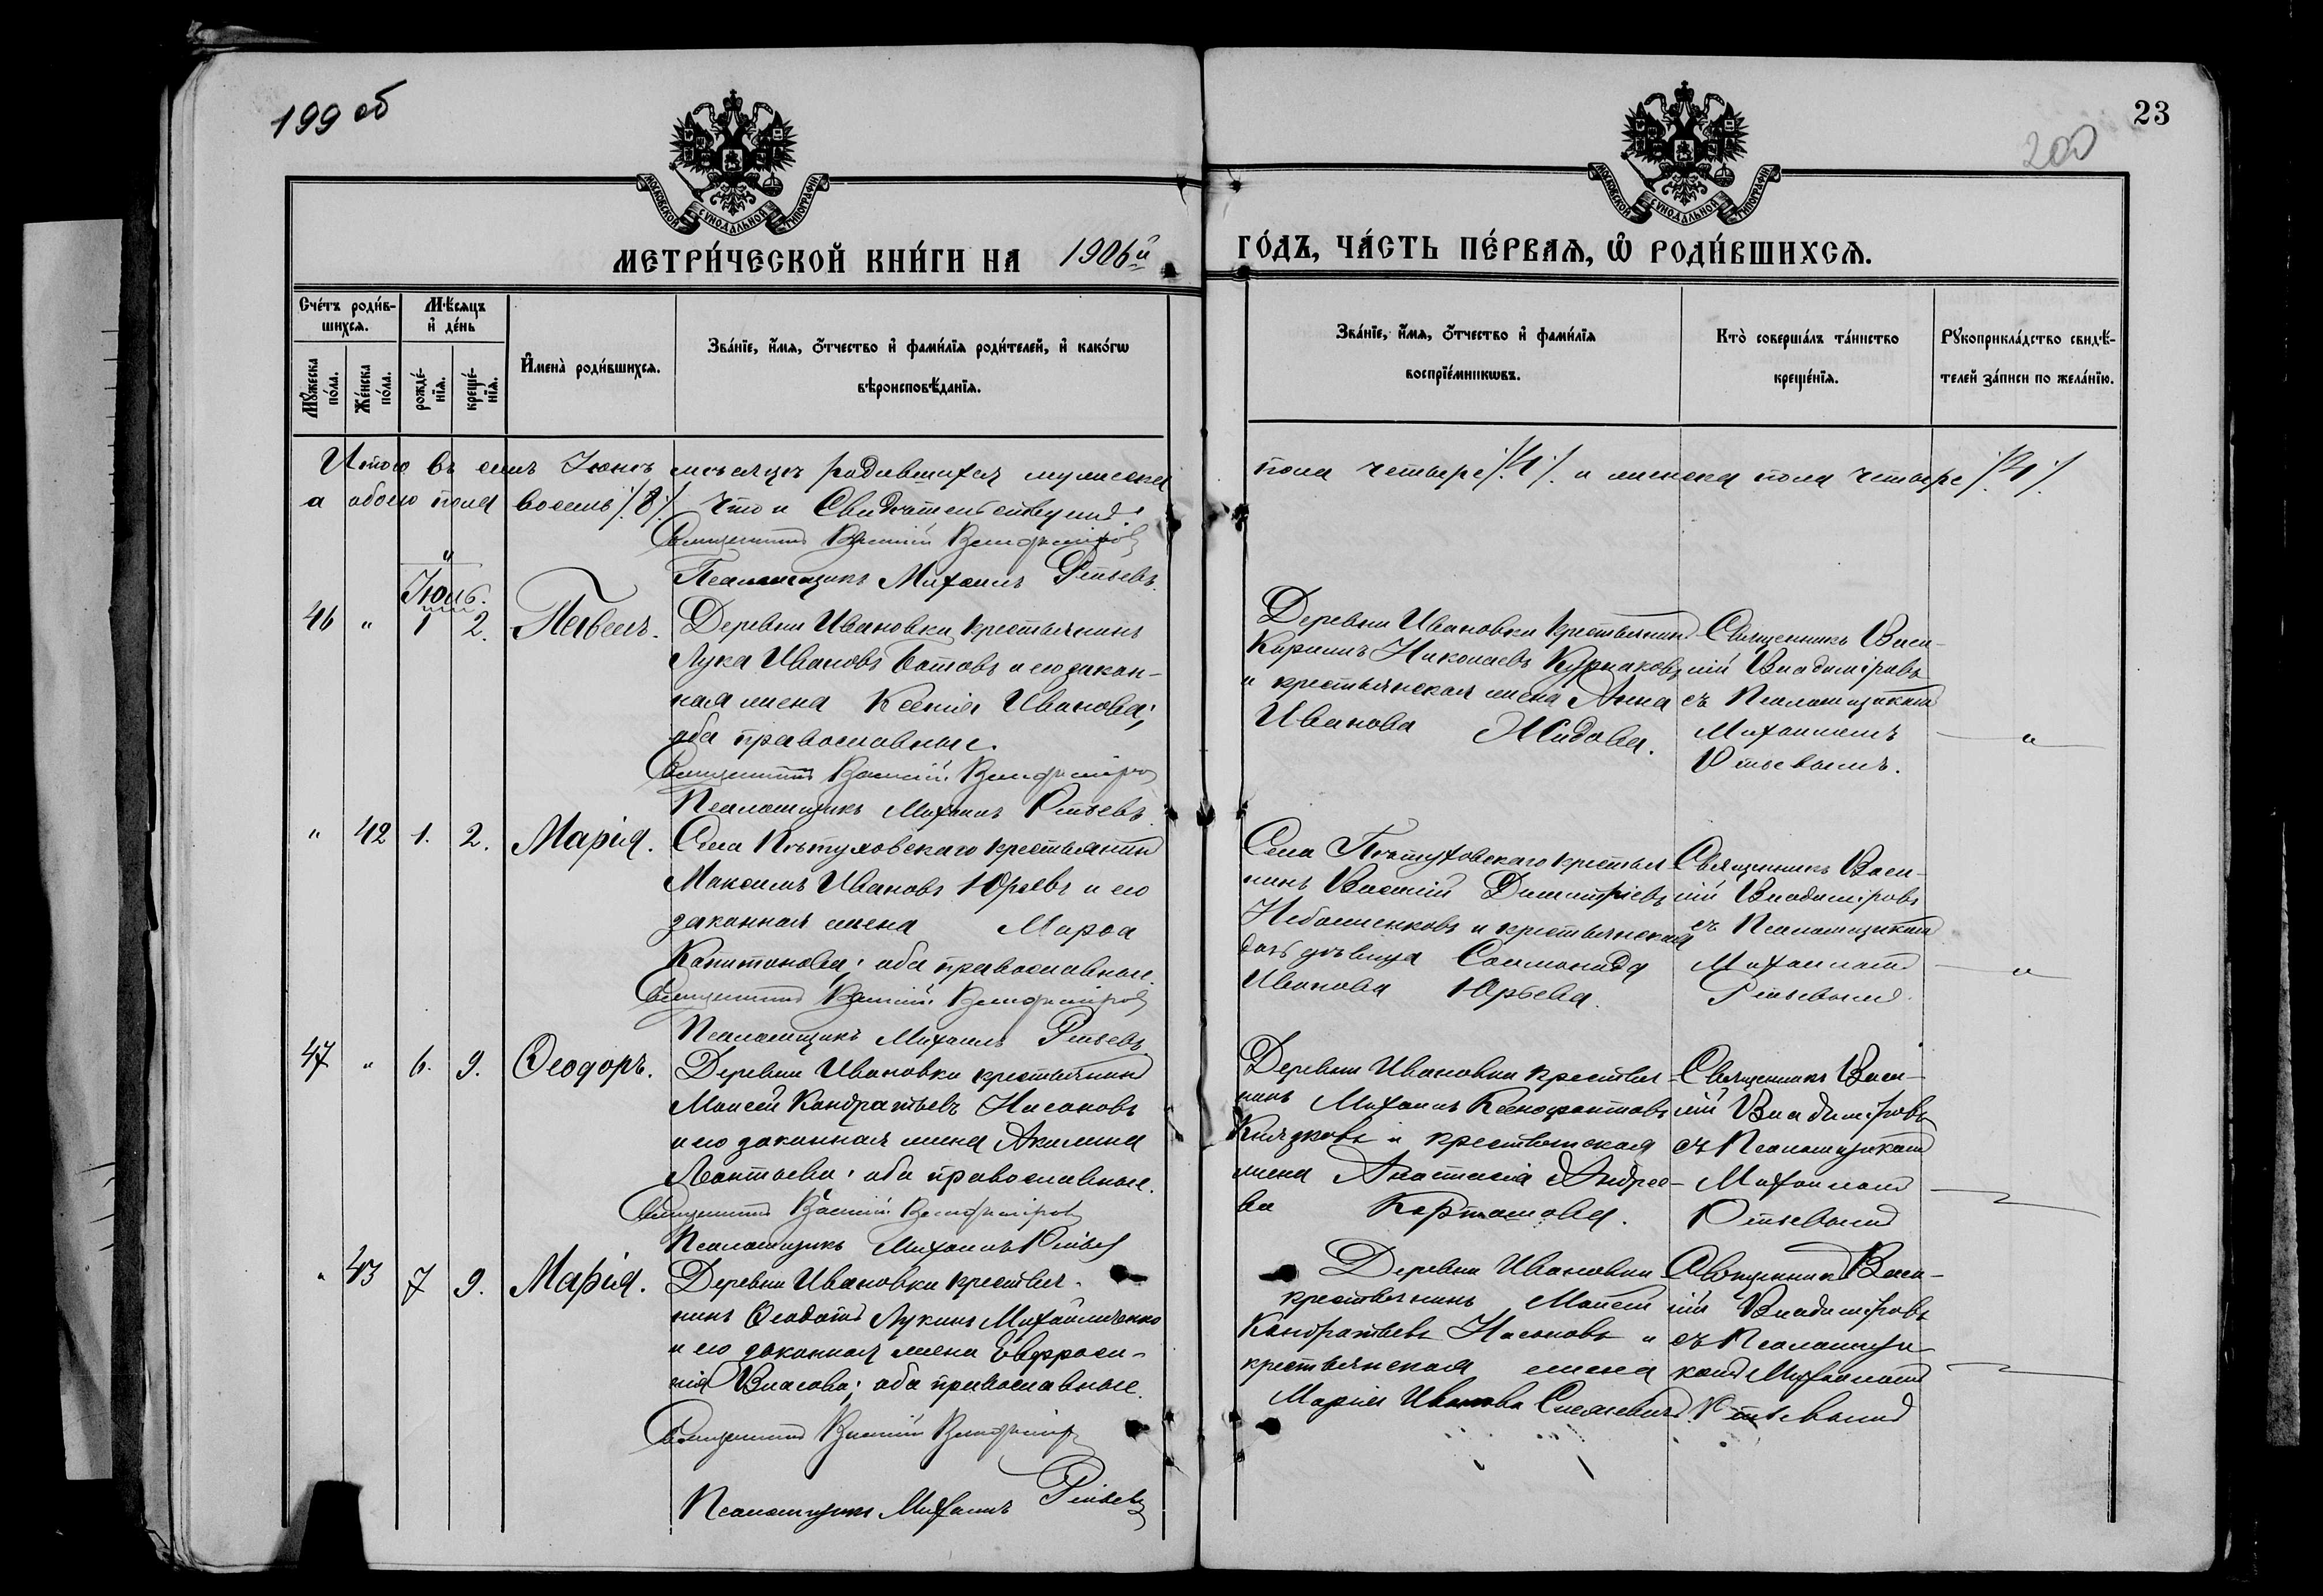 199 об
23
200
МОСКОВСКОЙ СУНОДАЛЬНОЙ ТИПОГРАФІИ
МОСКОВСКОЙ СУНОДАЛЬНОЙ ТИПОГРАФІИ
МЕТРИ́ЧЕСКОЙ КНИ́ГИ НА 1906й
ГО́ДЪ, ЧА́СТЬ ПЕ́РВАЯ, Ѿ РОДИ́ВШИХСЯ.
Сче́тъ роди́в-
шихся.
Мꙋжеска по́ла.
Же́нска по́ла.
Мѣ́сяцъ
и҆ де́нь
рожде́-
нїя.
креще́-
нїя.
И҆мена̀ роди́вшихся.
Зва́нїе, и҆́мя, ѻ҆́тчество и҆ фами́лїя роди́телей, и҆ како́гѡ
вѣроисповѣ́данїя.
Зва́нїе, и҆́мя, ѻ҆́тчество и҆ фами́лїя
воспрїе́мникѡвъ.
Кто̀ соверша́лъ та́инство
креще́нїя.
Рꙋкоприкла́дство свидѣ́-
телей за́писи по жела́нїю.
Итого въ семъ Іюнѣ мѣсяцѣ родившихся мужеска
пола четыре /4/. и женска пола четыре /4/.
а обоего пола восемь /8/. Что и Свидѣтельствуемъ:
Священникъ Василій Владиміровъ
Псаломщикъ Михаилъ
Іюль.
46 " 1 2. Павелъ. Деревни Ивановки крестьянинъ
Лука Ивановъ Ботовъ и его закон-
ная жена Ксенія Иванова;
оба православные.
Священникъ Василій Владиміров
Псаломщикъ Михаилъ
Деревни Ивановки крестьянинъ
Кириллъ Николаевъ
и крестьянская жена Анна
Иванова Жидова.
Священникъ Васи-
лій Владиміровъ
съ Псаломщикомъ
Михаиломъ
" 42 1. 2. Марія. Села Пѣтуховскаго крестьянинъ
Максимъ Ивановъ Юрьевъ и его
законная жена Марѳа
Капитонова; оба православные.
Священникъ Василій Владиміровъ
Псаломщикъ Михаилъ
Села Пѣтуховскаго крестья-
нинъ Василій Димитріевъ
и крестьянская
дочь дѣвица Соломонида
Иванова Юрьева.
Священникъ Васи-
лій Владиміровъ
съ Псаломщикомъ
Михаиломъ
47 " 6. 9. Ѳеодоръ. Деревни Ивановки крестьянинъ
Моисей Кондратьевъ Насоновъ
и его законная жена Акилина
Леонтьева; оба православные.
Священникъ Василій Владиміров
Псаломщикъ Михаилъ
Деревни Ивановки крестья-
нинъ Михаилъ Ксенофонтовъ
Князковъ и крестьянская
жена Анастасія Андрее-
ва Карташова.
Священникъ Васи-
лій Владиміровъ
съ Псаломщикомъ
Михаиломъ
" 43 7 9. Марія. Деревни Ивановки крестья-
нинъ Ѳеодотъ Лукинъ Михайличенко
и его законная жена Евфроси-
нія Власова; оба православные.
Священникъ Василій Владимір
Псаломщикъ Михаилъ
Деревни Ивановки
крестьянинъ Моисей
Кондратьевъ Насоновъ и
крестьянская жена
Марія Иванова
Священникъ Васи-
лій Владиміровъ
съ Псаломщи
комъ Михаиломъ